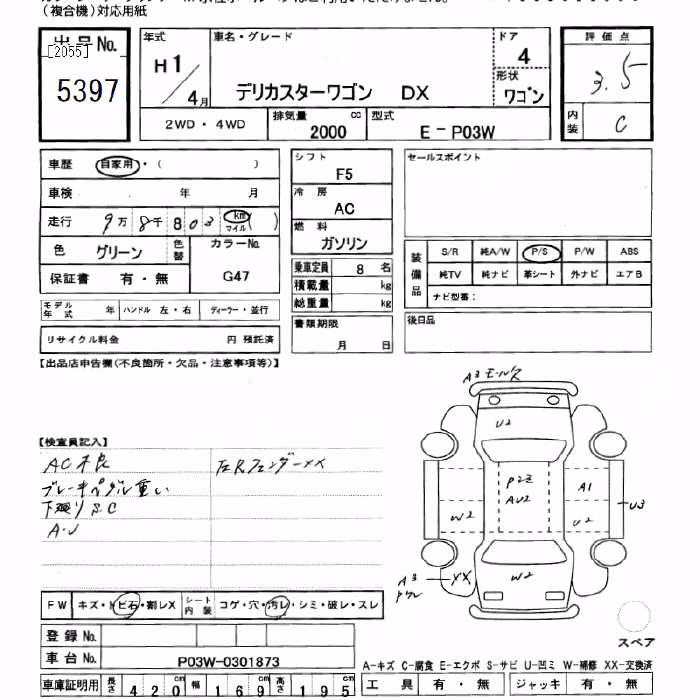 (複合機)対応用紙
出品No.
[2055]
5397
年式
H1/4月
車名・グレード
デリカスターワゴン DX
ドア
4
形状
ワゴン
評価点
3.5
内装
C
2WD・4WD
排気量 cc
2000
型式
E-P03W
車歴 自家用・( )
車検 年 月
走行 9万8千803 km マイル( )
色 グリーン 色替
カラーNo.
G47
保証書 有・無
モデル年式 年 ハンドル 左・右 ディーラー・並行
リサイクル料金 円 預託済
シフト
F5
冷房
AC
燃料
ガソリン
乗車定員 8 名
積載量 kg
総重量 kg
書類期限
月 日
セールスポイント
装備品
S/R 純A/W P/S P/W ABS
純TV 純ナビ 革シート 外ナビ エアB
ナビ型番:
後日品
【出品店申告欄(不良箇所・欠品・注意事項等)】
【検査員記入】
AC不良
左Rフェンダー XX
ブレーキペダル重い
下廻りS.C
A・U
A3 モール欠
U2
P2ミ
AU2
A1
U3
W2
U2
A3
XX
W2
FW キズ・トビ石・割レX シート内装 コゲ・穴・汚レ・シミ・破レ・スレ
登録No.
車台No. P03W-0301873
車庫証明用 長さ 420cm 幅 169cm 高さ 195cm
スペア
A-キズ C-腐食 E-エクボ S-サビ U-凹ミ W-補修 XX-交換済
工具 有・無 ジャッキ 有・無